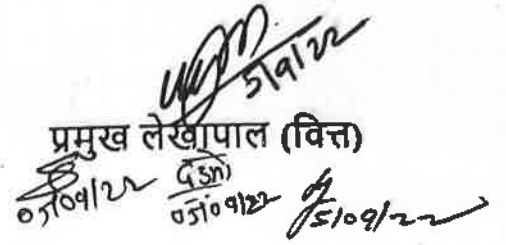 5/9/22
प्रमुख लेखापाल (वित्त)
05/09/22 05/09/22 5/09/22